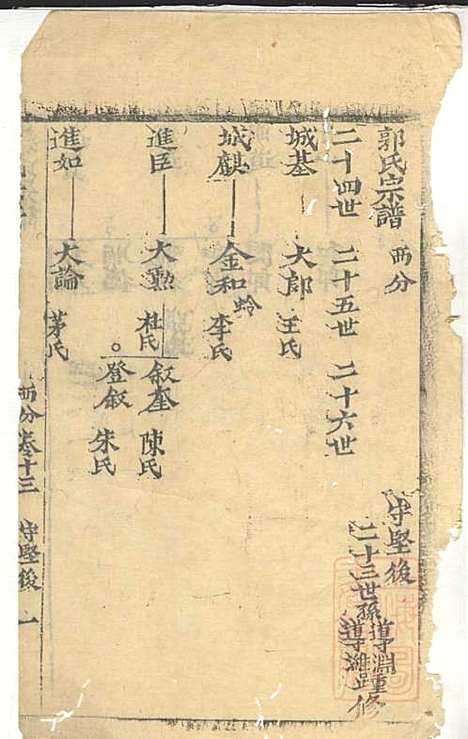 郭氏宗譜 西分 守堅後
二十三世孫導淵導濰踵修
二十四世 二十五世 二十六世
城基 大郎 王氏
城麒 金和 蛉 李氏
進臣 大勳 杜氏 叙奎 陳氏
登叙 朱氏
進如 大論 茅氏
西分 卷十三 守堅後 一